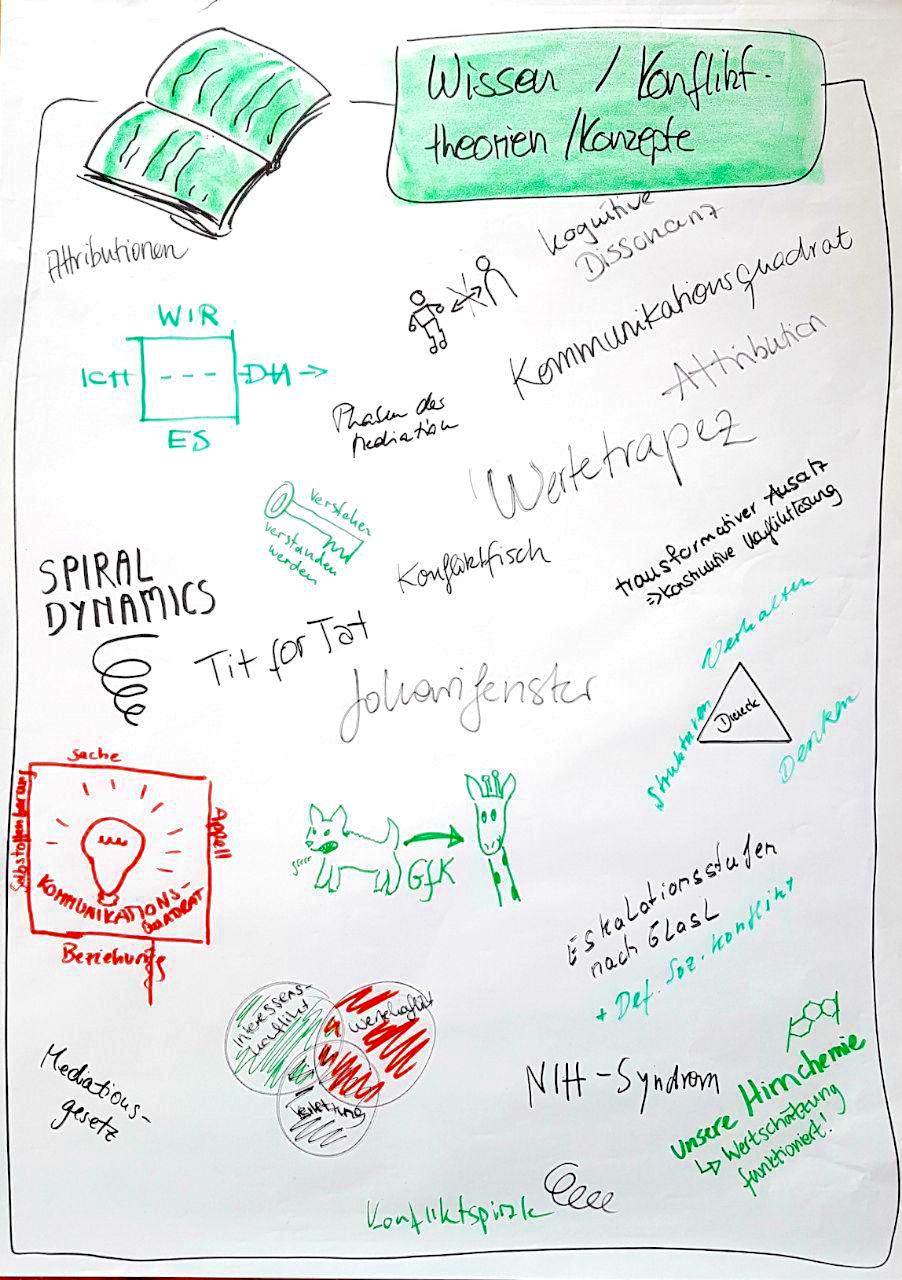 Wissen / Konflikt-
theorien / Konzepte
Attributionen
kognitive
Dissonanz
WIR
ICH
DU
ES
Kommunikationsquadrat
Attribution
Phasen der
Mediation
Wertetrapez
verstehen
verstanden
werden
Konfliktfisch
transformativer Ansatz
=> konstruktive Konfliktlösung
SPIRAL
DYNAMICS
Tit for Tat
Joharifenster
Verhalten
Strukturen
Dreieck
Denken
Sache
Selbstoffenbarung
Appell
KOMMUNIKATIONS-
QUADRAT
Beziehung
grrrr
GfK
Eskalationsstufen
nach Glasl
+ Def. Soz. Konflikt
Interessens-
konflikt
Wertekonflikt
NIH-Syndrom
Mediations-
gesetz
unsere Hirnchemie
↳ Wertschätzung
funktioniert!
Konfliktspirale